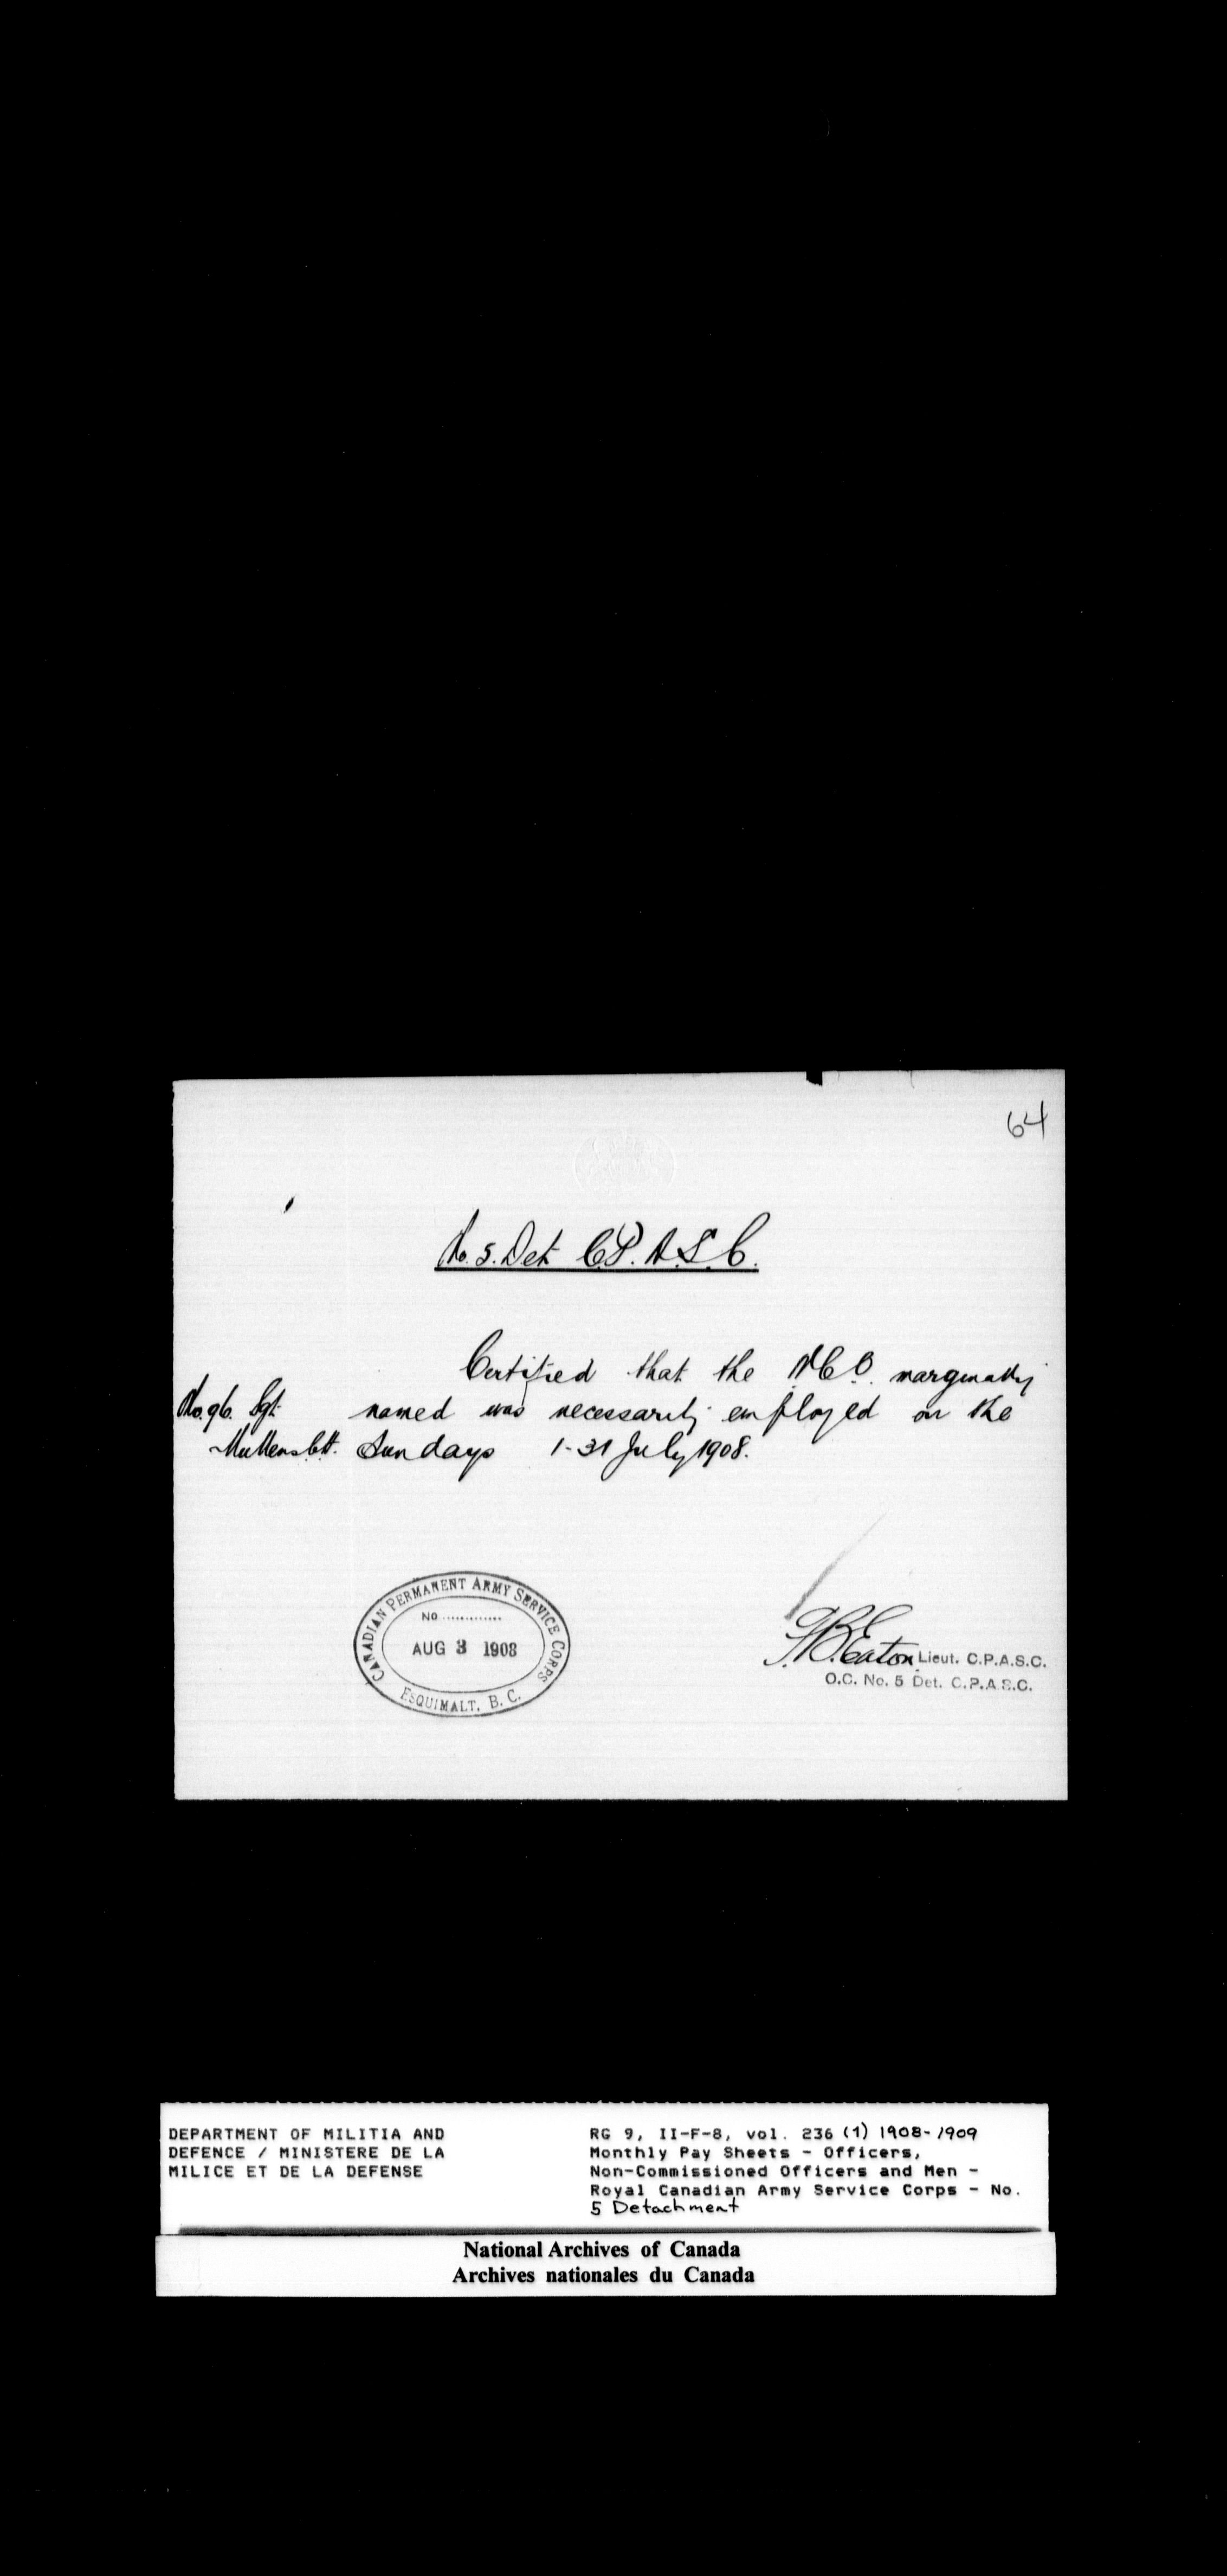 64
No. 5. Det C.P.A.S.C.
Certified that the N.C.O. marginally
No. 96. Sgt. named was necessarily employed on the
Mullens Sundays 1-31 July 1908.
CANADIAN PERMANENT ARMY SERVICE CORPS
No ..............
AUG 3 1908
ESQUIMALT, B. C.
Eaton Lieut. C.P.A.S.C.
O.C. No. 5 Det. C.P.A.S.C.
DEPARTMENT OF MILITIA AND
DEFENCE / MINISTERE DE LA
MILICE ET DE LA DEFENSE
RG 9, II-F-8, vol. 236 (1) 1908-1909
Monthly Pay Sheets - Officers,
Non-Commissioned Officers and Men -
Royal Canadian Army Service Corps - No.
5 Detachment
National Archives of Canada
Archives nationales du Canada